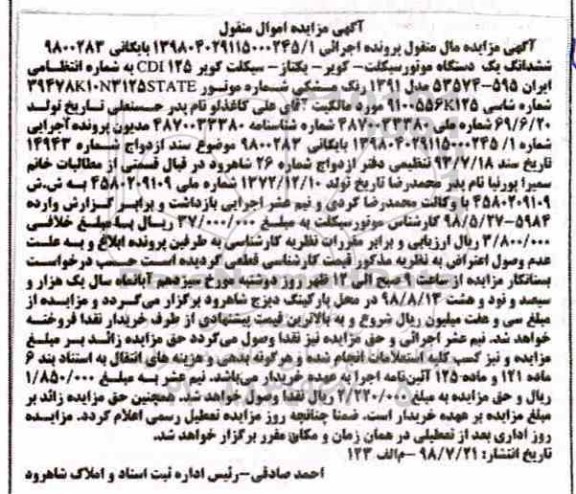 آگهی مزایده اموال منقول
آگهی مزایده مال منقول پرونده اجرائی ۱۳۹۸۰۴۰۲۹۱۱۵۰۰۰۲۴۵/۱ بایگانی ۹۸۰۰۲۸۳
ششدانگ یک دستگاه موتورسیکلت- کویر- یکتاز- سیکلت کویر CDI ۱۲۵ به شماره انتظامی
ایران ۵۹۵-۵۳۵۷۴ مدل ۱۳۹۱ رنگ مشکی شماره موتور ۳۹۴۷۸K۱۰N۳۱۲۵STATE
شماره شاسی ۹۱۰۰۵۵۶K۱۲۵ مورد مالکیت آقای علی کاغذلو نام پدر حسنعلی تاریخ تولد
۶۹/۶/۲۰ شماره ملی ۴۸۷۰۰۳۳۳۸۰ شماره شناسنامه ۴۸۷۰۰۳۳۳۸۰ مدیون پرونده اجرایی
شماره ۱۳۹۸۰۴۰۲۹۱۱۵۰۰۰۲۴۵/۱ بایگانی ۹۸۰۰۲۸۳ موضوع سند ازدواج شماره ۱۴۹۴۳
تاریخ سند ۹۳/۷/۱۸ تنظیمی دفتر ازدواج شماره ۲۶ شاهرود در قبال قسمتی از مطالبات خانم
سمیرا پورنیا نام پدر محمدرضا تاریخ تولد ۱۳۷۲/۱۲/۱۰ شماره ملی ۴۵۸۰۲۰۹۱۰۹ به ش.ش
۴۵۸۰۲۰۹۱۰۹ با وکالت محمدرضا کردی و نیم عشر اجرایی بازداشت و برابر گزارش وارده
۵۹۸۴-۹۸/۵/۲۷ کارشناس موتورسیکلت به مبلغ ۳۷/۰۰۰/۰۰۰ ریال با مبلغ خلافی
۳/۸۰۰/۰۰۰ ریال ارزیابی و برابر مقررات نظریه کارشناسی به طرفین پرونده ابلاغ و به علت
عدم وصول اعتراض به نظریه مذکور قیمت کارشناسی قطعی گردیده است حسب درخواست
بستانکار مزایده از ساعت ۹ صبح الی ۱۲ ظهر روز دوشنبه مورخ سیزدهم آبانماه سال یک هزار و
سیصد و نود و هشت ۹۸/۸/۱۳ در محل پارکینگ دیزج شاهرود برگزار می‌گردد و مزایده از
مبلغ سی و هفت میلیون ریال شروع و به بالاترین قیمت پیشنهادی از طرف خریدار نقدا فروخته
خواهد شد. نیم عشر اجرائی و حق مزایده نیز نقدا وصول می‌گردد حق مزایده زائد بر مبلغ
مزایده و نیز کسب کلیه استعلامات انجام شده و هرگونه بدهی و هزینه های انتقال به استناد بند ۶
ماده ۱۲۱ و ماده ۱۲۵ آئین‌نامه اجرا به عهده خریدار می‌باشد. نیم عشر به مبلغ ۱/۸۵۰/۰۰۰
ریال و حق مزایده به مبلغ ۲/۲۲۰/۰۰۰ ریال نقدا وصول خواهد شد. همچنین حق مزایده زائد بر
مبلغ مزایده بر عهده خریدار است. ضمنا چنانچه روز مزایده تعطیل رسمی اعلام گردد. مزایده
روز اداری بعد از تعطیلی در همان زمان و مکان مقرر برگزار خواهد شد.
تاریخ انتشار: ۹۸/۷/۲۱ -م‌الف ۱۲۳
احمد صادقی-رئیس اداره ثبت اسناد و املاک شاهرود